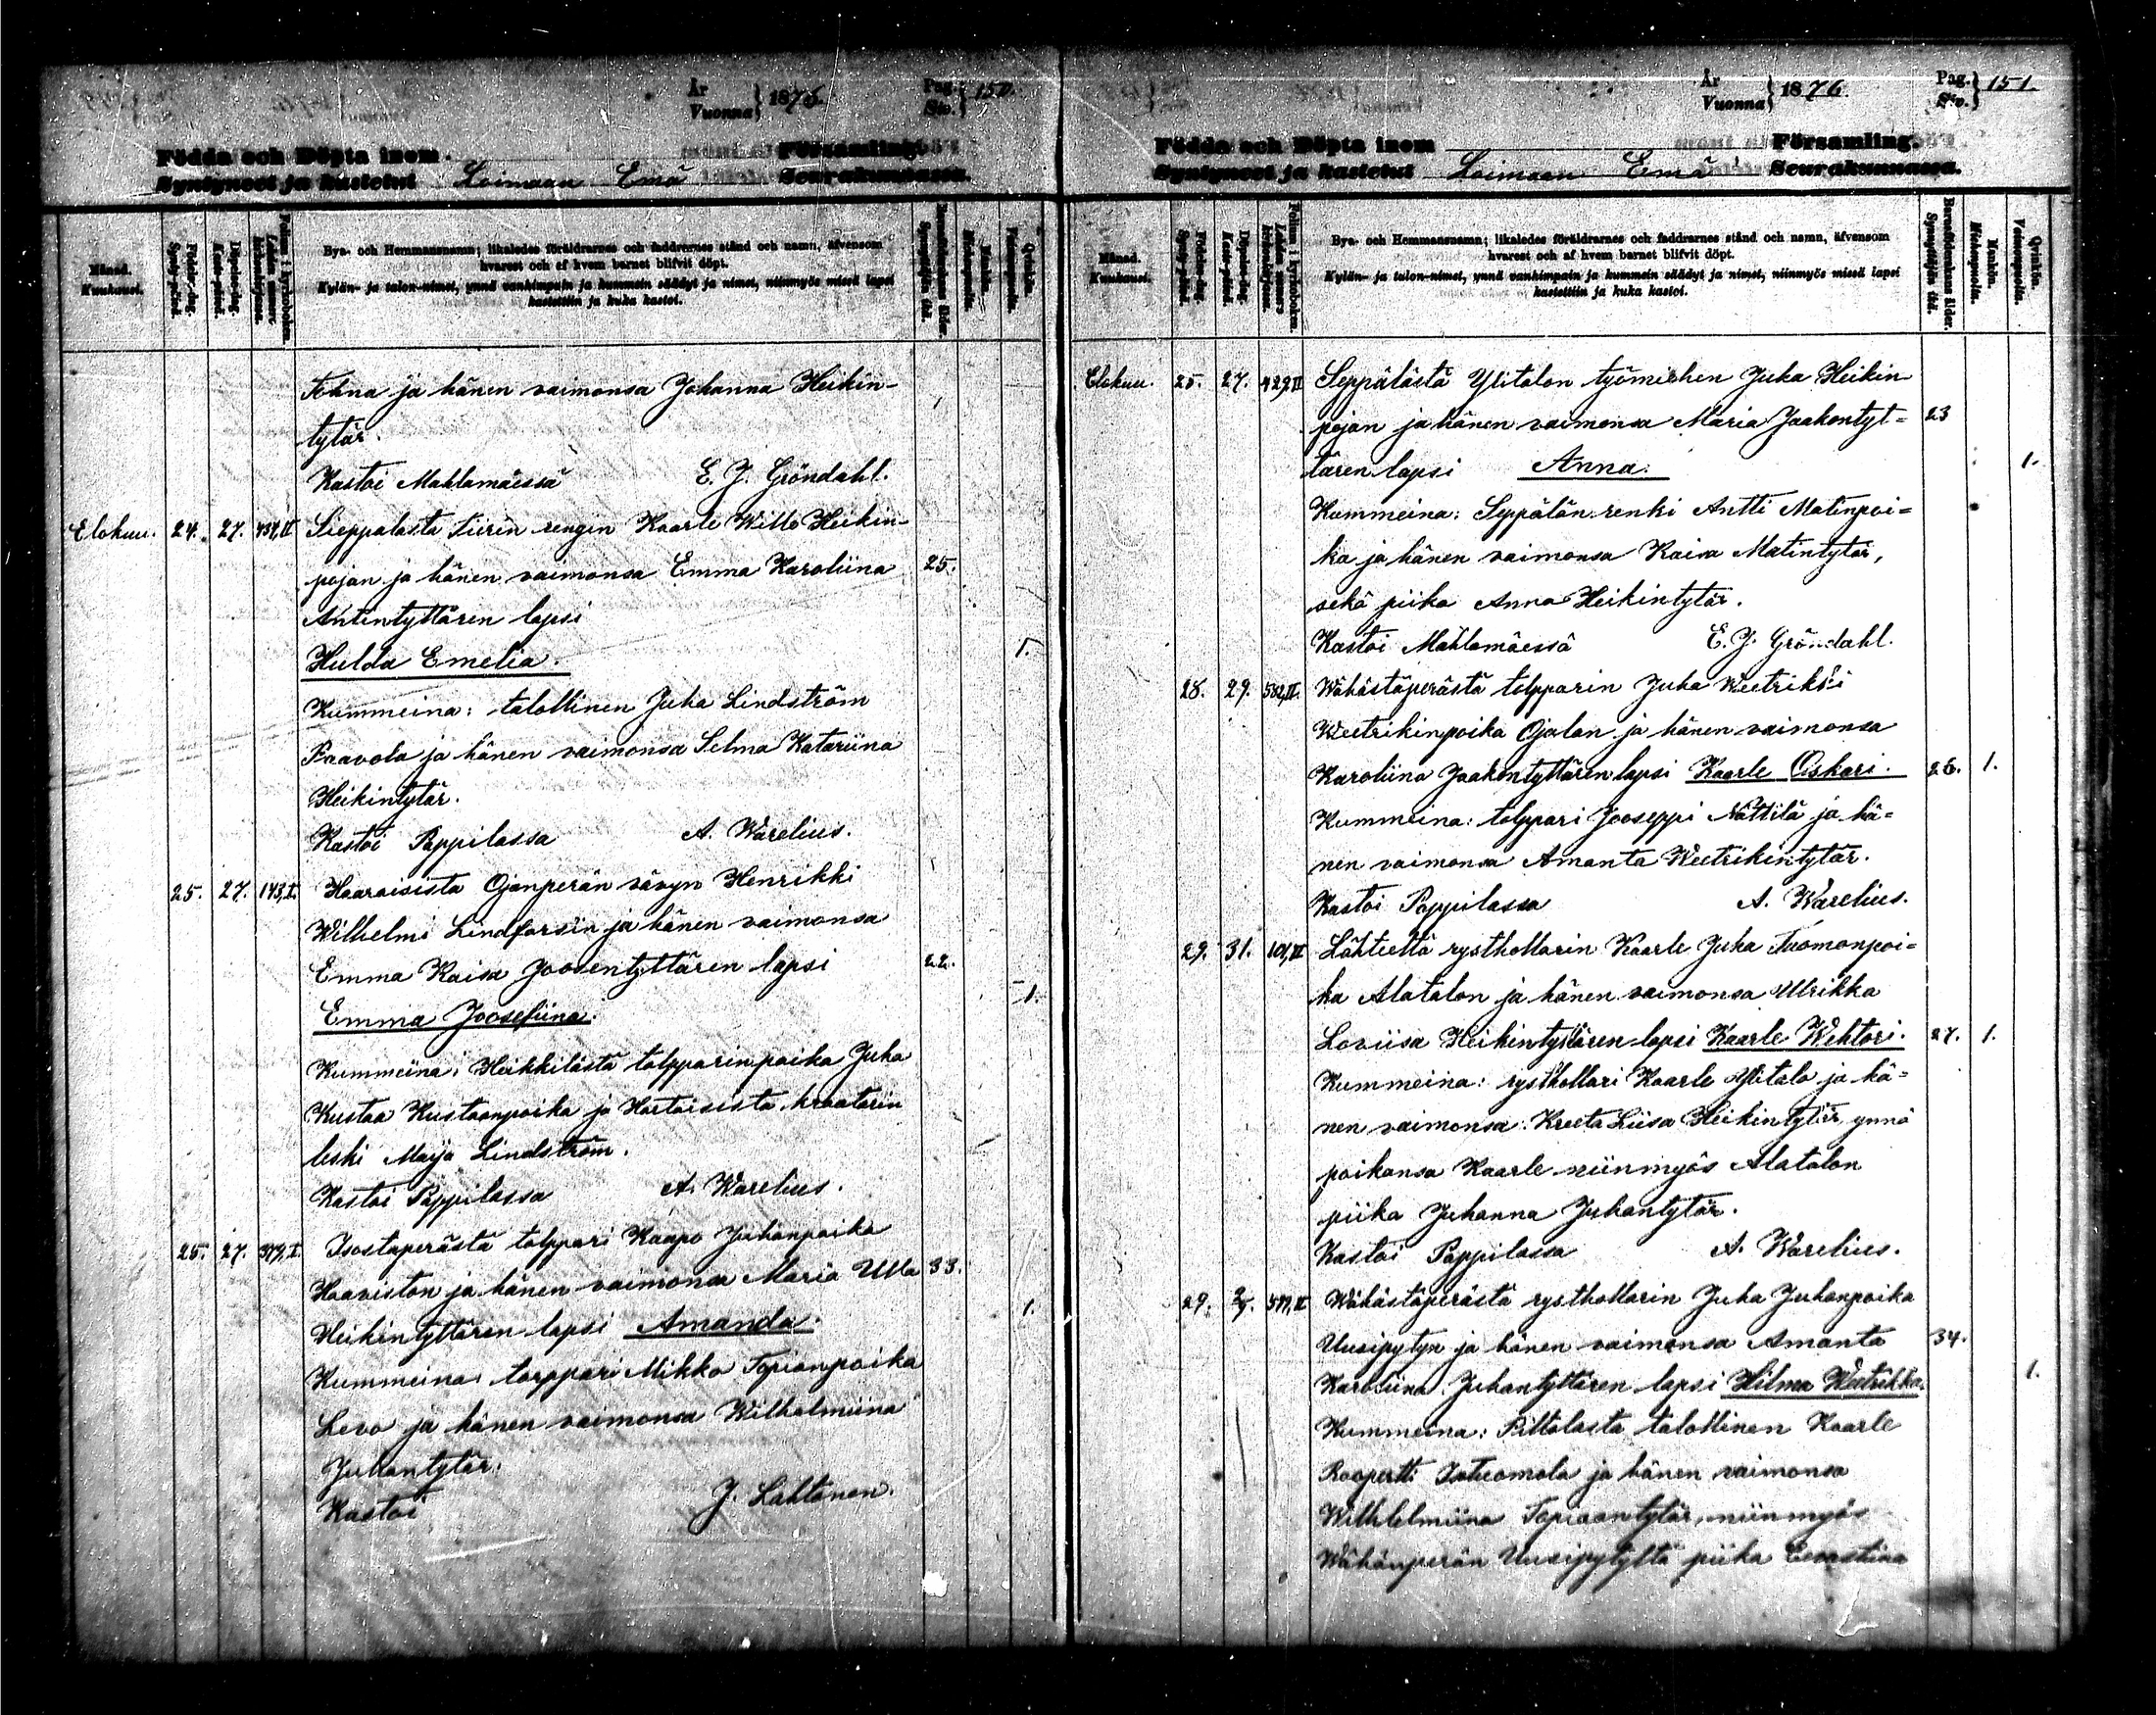 År
Vuonna } 1876.
Pag.
Siv. } 150.
Födda och Döpta inom Församling.
Syntyneet ja kastetut Loimaan Emä Seurakunnassa.
Månad.
Kuukausi.
Födelse-dag.
Synty-päivä.
Döpelse-dag.
Kaste-päivä.
Folium i kyrkoboken.
Bya- och Hemmansnamn; likaledes föräldrarnes och faddrarnes stånd och namn, äfvensom
hvarest och af hvem barnet blifvit döpt.
Kylän- ja talon-nimet, ynnä vanhimpain ja kummein säädyt ja nimet, niinmyös missä lapsi
kastettiin ja kuka kastoi.
Barnaföderskans ålder.
Synnyttäjän ikä.
Mankön.
Miehenpuolia.
Qvinkön.
Vaimonpuolia.
ja hänen vaimonsa Johanna Heikin-
tytär.
Kastoi Mahlamäessä E. J. Gröndahl.
Elokuu. 24. 27. 437,II Sieppalasta Tiirin rengin Kaarle Wille Heikin-
pojan ja hänen vaimonsa Emma Karoliina 25.
Antintyttären lapsi
Hulda Emelia. 1.
Kummeina: talollinen Juha Lindström
Paavola ja hänen vaimonsa Selma Katariina
Heikintytär.
Kastoi Pappilassa A. Warelius.
25. 27. 143,I. Haaroisista Ojanperän vävyn Henrikki
Wilhelmi Lindforsin ja hänen vaimonsa
Emma Kaisa Joosentyttären lapsi 22.
Emma Joosefiina. 1.
Kummeina: Heikkilästä tolpparinpoika Juha
Kustaa Kustaanpoika ja Hartoisista kraatarin
leski Maija Lindström.
Kastoi Pappilassa A. Warelius.
25. 27. 379,I. Isostaperästä tolppari Kaapo Juhanpoika
Haaviston ja hänen vaimonsa Maria Ulla 33.
Heikintyttären lapsi Amanda. 1.
Kummeina: torppari Mikko Topianpoika
Levo ja hänen vaimonsa Wilhelmiina
Juhantytär.
Kastoi J. Lahtonen.
År
Vuonna } 1876
Pag.
Siv. } 151.
Födda och Döpta inom Församling.
Syntyneet ja kastetut Loimaan Emä Seurakunnassa.
Månad.
Kuukausi.
Födelse-dag.
Synty-päivä.
Döpelse-dag.
Kaste-päivä.
Folium i kyrkoboken.
Bya- och Hemmansnamn; likaledes föräldrarnes och faddrarnes stånd och namn, äfvensom
hvarest och af hvem barnet blifvit döpt.
Kylän- ja talon-nimet, ynnä vanhimpain ja kummein säädyt ja nimet, niinmyös missä lapsi
kastettiin ja kuka kastoi.
Barnaföderskans ålder.
Synnyttäjän ikä.
Mankön.
Miehenpuolia.
Qvinkön.
Vaimonpuolia.
Elokuu. 25. 27. 429,II Seppälästä Ylitalon työmiehen Juha Heikin-
pojan ja hänen vaimonsa Maria Jaakontyt= 23
tären lapsi Anna. 1.
Kummeina: Seppälän renki Antti Matinpoi=
ka ja hänen vaimonsa Kaisa Matintytär,
sekä piika Anna Heikintytär.
Kastoi Mahlamäessä E. J. Gröndahl.
28. 29. 582,II. Wähästäperästä tolpparin Juha Weetrikki
Weetrikinpoika Ojalan ja hänen vaimonsa
Karoliina Jaakontyttären lapsi Kaarle Oskari. 26. 1.
Kummeina: tolppari Jooseppi Nättilä ja hä=
nen vaimonsa Amanta Weetrikintytär.
Kastoi Pappilassa A. Warelius.
29. 31. 101,II Lähteeltä rysthollarin Kaarle Juha Tuomonpoi=
ka Alatalon ja hänen vaimonsa Ulrikka
Loviisa Heikintyttären lapsi Kaarle Wihtori. 27. 1.
Kummeina: rysthollari Kaarle Ylitalo ja hä=
nen vaimonsa Kreeta Liisa Heikintytär, ynnä
poikansa Kaarle niinmyös Alatalon
piika Juhanna Juhantytär.
Kastoi Pappilassa A. Warelius.
29. 577,II Wähästäperästä rysthollarin Juha Juhanpoika
Uusipytyn ja hänen vaimonsa Amanta 34.
Karoliina Juhantyttären lapsi Hilma Weetrikka. 1.
Kummeina: talollinen Kaarle
Roopertti Isotuomola ja hänen vaimonsa
Wilhelmiina Topiaantytär, niinmyös
Wähänperän Uusipytyltä piika Eevastiina